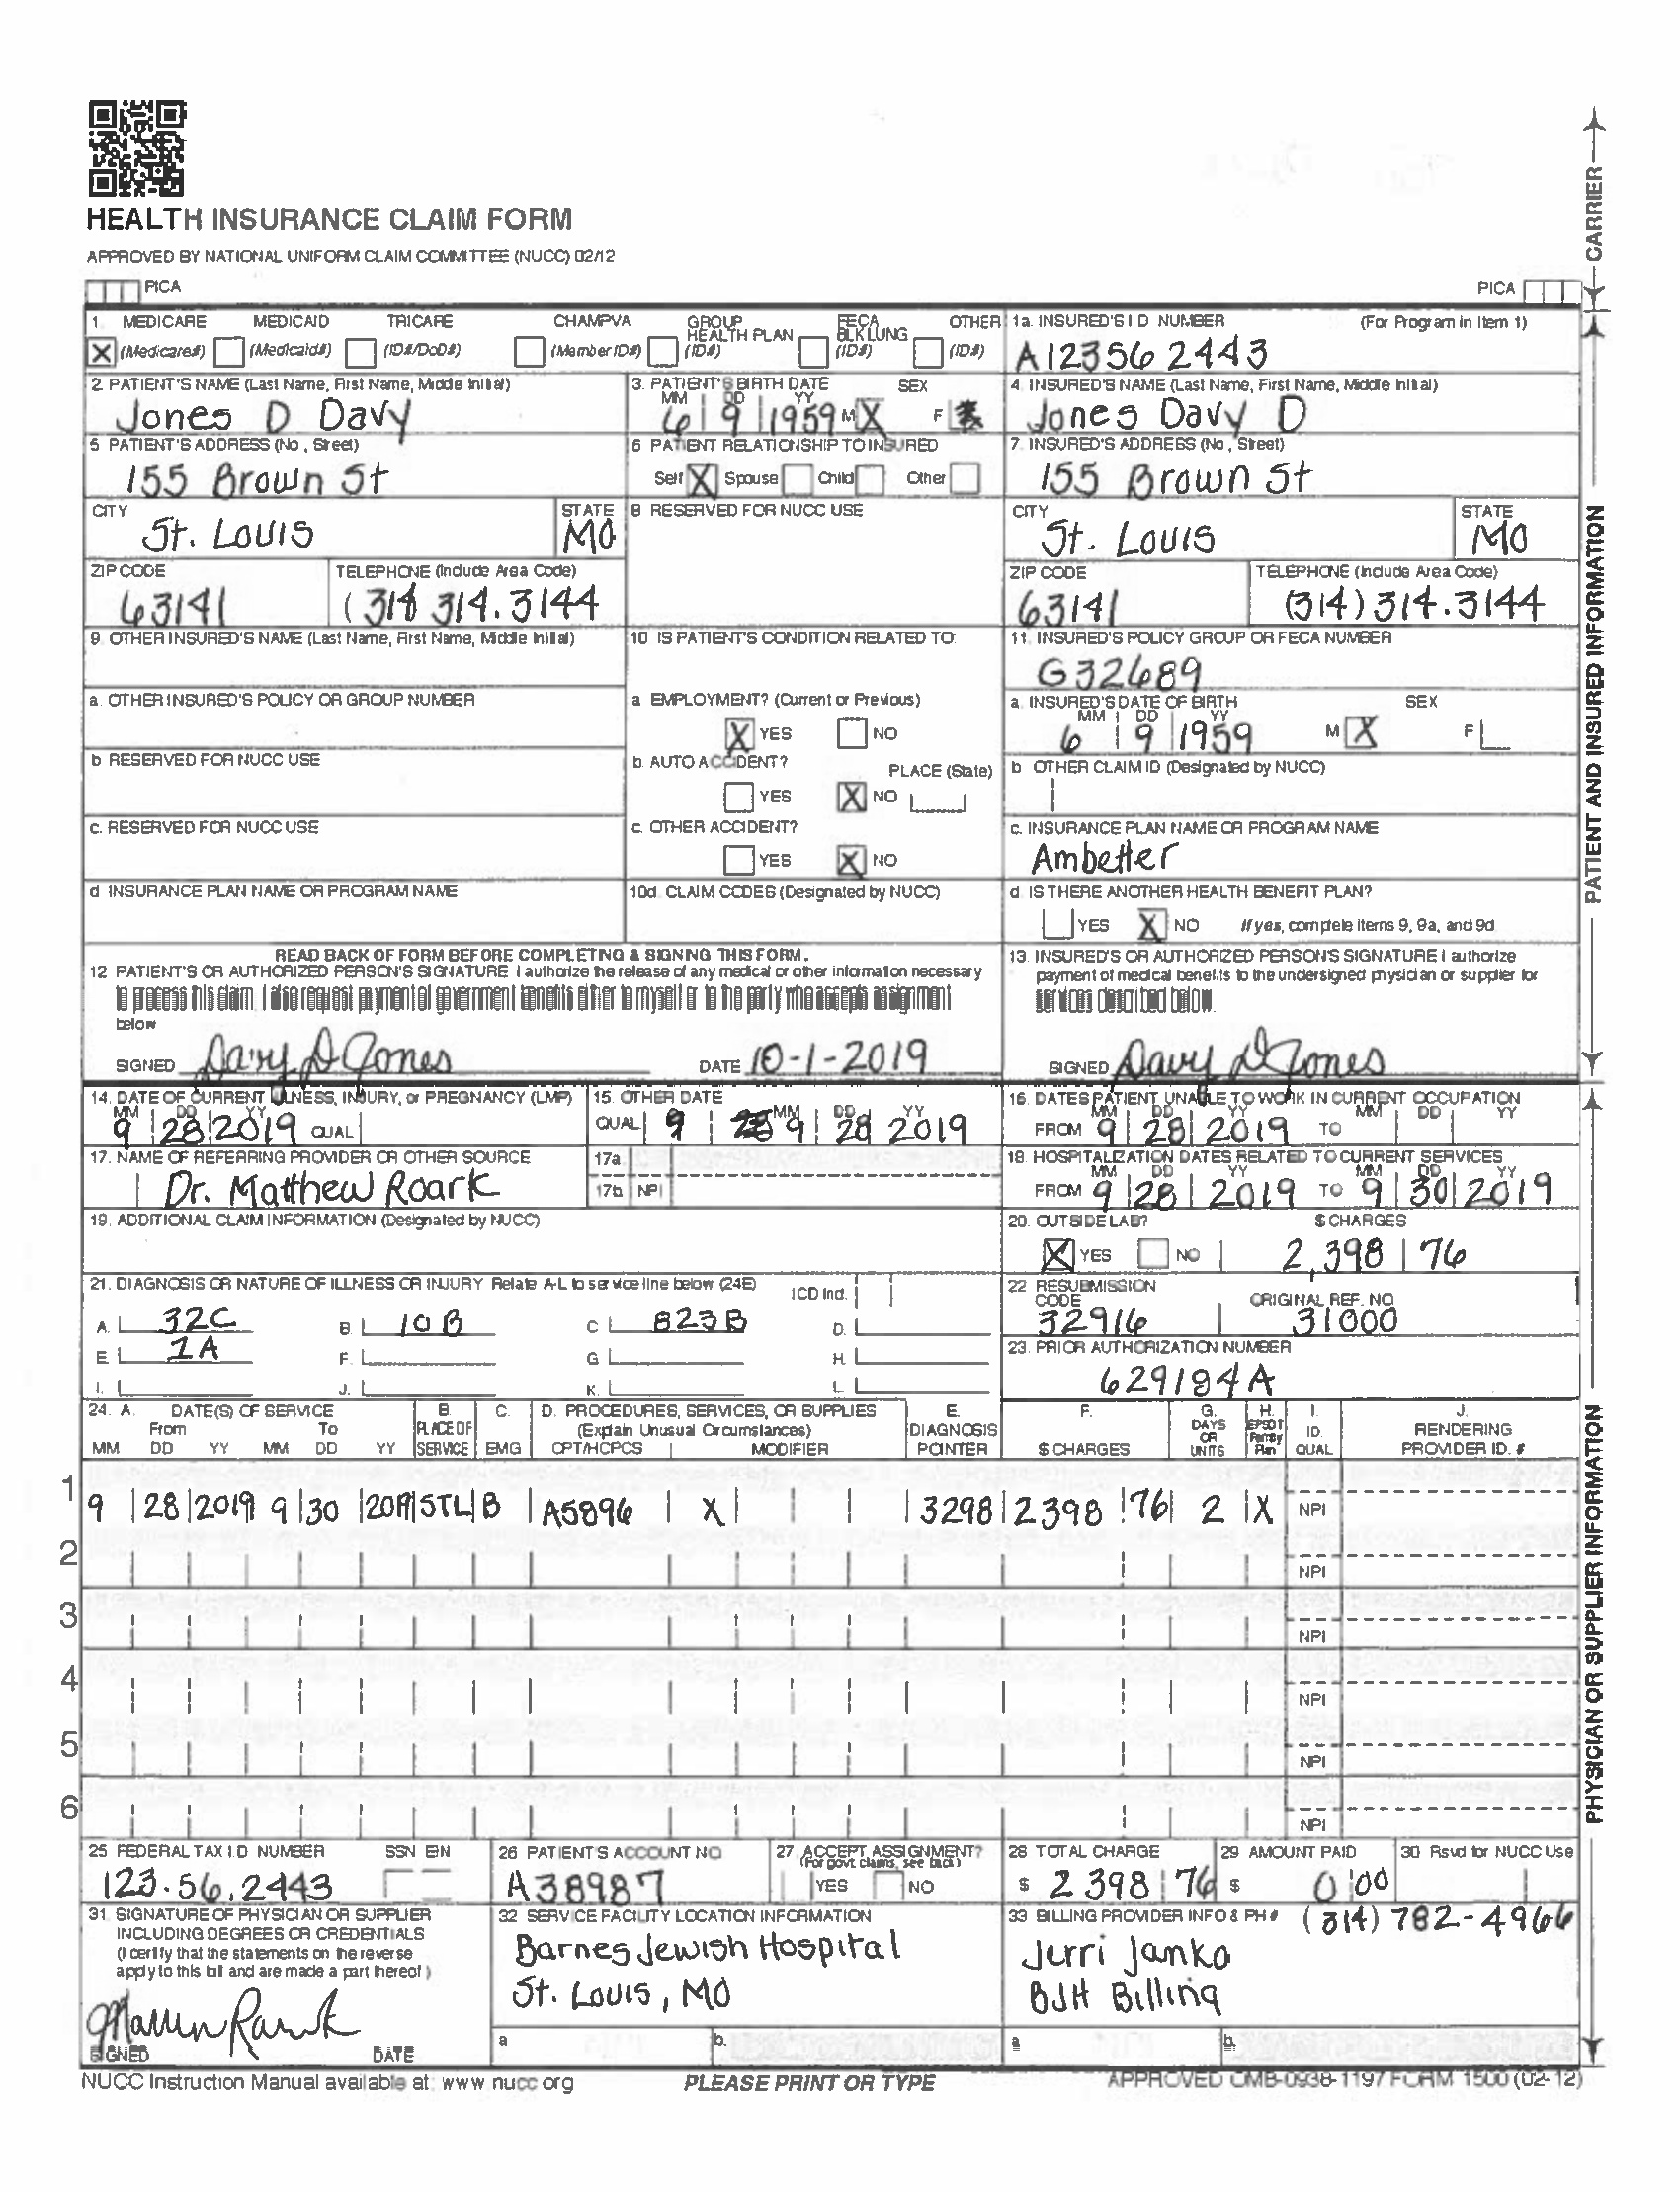 HEALTH INSURANCE CLAIM FORM
APPROVED BY NATIONAL UNIFORM CLAIM COMMITTEE (NUCC) 02/12
PICA
PICA
CARRIER
1. MEDICARE MEDICAID TRICARE CHAMPVA GROUP HEALTH PLAN FECA BLK LUNG OTHER
X (Medicare#) (Medicaid#) (ID#/DoD#) (Member ID#) (ID#) (ID#) (ID#)
1a. INSURED'S I.D NUMBER (For Program in Item 1)
A123562443
2. PATIENT'S NAME (Last Name, First Name, Middle Initial)
Jones D Davy
3. PATIENT'S BIRTH DATE SEX
MM DD YY
6 9 1959 M X F
4. INSURED'S NAME (Last Name, First Name, Middle Initial)
Jones Davy D
5 PATIENT'S ADDRESS (No, Street)
155 Brown St
6 PATIENT RELATIONSHIP TO INSURED
Self X Spouse Child Other
7. INSURED'S ADDRESS (No, Street)
155 Brown St
CITY STATE
St. Louis MO
8 RESERVED FOR NUCC USE
CITY STATE
St. Louis MO
ZIP CODE TELEPHONE (Include Area Code)
63141 (314 314.3144
ZIP CODE TELEPHONE (Include Area Code)
63141 (314) 314.3144
9. OTHER INSURED'S NAME (Last Name, First Name, Middle Initial)
10 IS PATIENT'S CONDITION RELATED TO:
11. INSURED'S POLICY GROUP OR FECA NUMBER
G32689
a. OTHER INSURED'S POLICY OR GROUP NUMBER
a EMPLOYMENT? (Current or Previous)
X YES NO
a. INSURED'S DATE OF BIRTH SEX
MM DD YY
6 9 1959 M X F
b RESERVED FOR NUCC USE
b. AUTO ACCIDENT? PLACE (State)
YES X NO
b OTHER CLAIM ID (Designated by NUCC)
c. RESERVED FOR NUCC USE
c. OTHER ACCIDENT?
YES X NO
c. INSURANCE PLAN NAME OR PROGRAM NAME
Ambetter
d INSURANCE PLAN NAME OR PROGRAM NAME
10d. CLAIM CODES (Designated by NUCC)
d. IS THERE ANOTHER HEALTH BENEFIT PLAN?
YES X NO If yes, complete items 9, 9a, and 9d
PATIENT AND INSURED INFORMATION
READ BACK OF FORM BEFORE COMPLETING & SIGNING THIS FORM.
12 PATIENT'S OR AUTHORIZED PERSON'S SIGNATURE I authorize the release of any medical or other information necessary
to process this claim. I also request payment of government benefits either to myself or to the party who accepts assignment
below
SIGNED Davy D Jones DATE 10-1-2019
13. INSURED'S OR AUTHORIZED PERSON'S SIGNATURE I authorize
payment of medical benefits to the undersigned physician or supplier for
services described below.
SIGNED Davy D Jones
14. DATE OF CURRENT ILLNESS, INJURY, or PREGNANCY (LMP)
MM DD YY
9 28 2019 QUAL
15. OTHER DATE
MM DD YY
QUAL 9 9 28 2019
16. DATES PATIENT UNABLE TO WORK IN CURRENT OCCUPATION
MM DD YY MM DD YY
FROM 9 28 2019 TO
17. NAME OF REFERRING PROVIDER OR OTHER SOURCE
Dr. Matthew Roark
17a
17b NPI
18. HOSPITALIZATION DATES RELATED TO CURRENT SERVICES
MM DD YY MM DD YY
FROM 9 28 2019 TO 9 30 2019
19. ADDITIONAL CLAIM INFORMATION (Designated by NUCC)
20. OUTSIDE LAB? $ CHARGES
X YES NO 2,398 76
21. DIAGNOSIS OR NATURE OF ILLNESS OR INJURY Relate A-L to service line below (24E) ICD Ind.
A. 32C B. 10B C 823B D.
E. 1A F. G H.
I. J. K. L.
22 RESUBMISSION
CODE ORIGINAL REF. NO
32916 31000
23. PRIOR AUTHORIZATION NUMBER
629184A
24. A. DATE(S) OF SERVICE B. C. D. PROCEDURES, SERVICES, OR SUPPLIES E. F. G. H. I. J.
From To PLACE OF (Explain Unusual Circumstances) DIAGNOSIS DAYS OR EPSDT Family ID. RENDERING
MM DD YY MM DD YY SERVICE EMG CPT/HCPCS MODIFIER POINTER $ CHARGES UNITS Plan QUAL PROVIDER ID. #
1 9 28 2019 9 30 2019 STL B A5896 X 3298 2398 76 2 X NPI
2 NPI
3 NPI
4 NPI
5 NPI
6 NPI
PHYSICIAN OR SUPPLIER INFORMATION
25 FEDERAL TAX I.D NUMBER SSN EIN
123.56.2443
26 PATIENT'S ACCOUNT NO
A38987
27 ACCEPT ASSIGNMENT?
(For govt. claims, see back)
YES NO
28 TOTAL CHARGE
$ 2398 76
29 AMOUNT PAID
$ 0 00
30 Rsvd for NUCC Use
31 SIGNATURE OF PHYSICIAN OR SUPPLIER
INCLUDING DEGREES OR CREDENTIALS
(I certify that the statements on the reverse
apply to this bill and are made a part thereof)
SIGNED DATE
32 SERVICE FACILITY LOCATION INFORMATION
Barnes Jewish Hospital
St. Louis, MO
a b.
33 BILLING PROVIDER INFO & PH # (314) 782-4966
Jerri Janko
BJH Billing
a b.
NUCC Instruction Manual available at: www nucc org
PLEASE PRINT OR TYPE
APPROVED OMB-0938-1197 FORM 1500 (02-12)